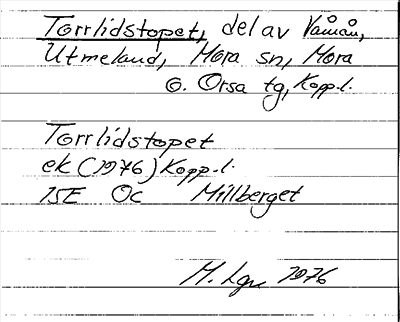 Torrlidstopet, del av Vamån,
Utmeland, Mora sn, Mora
o. Orsa tg, Kopp.l.
Torrlidstopet
ek (1976) Kopp.l.
15E Oc Millberget
M. 1976